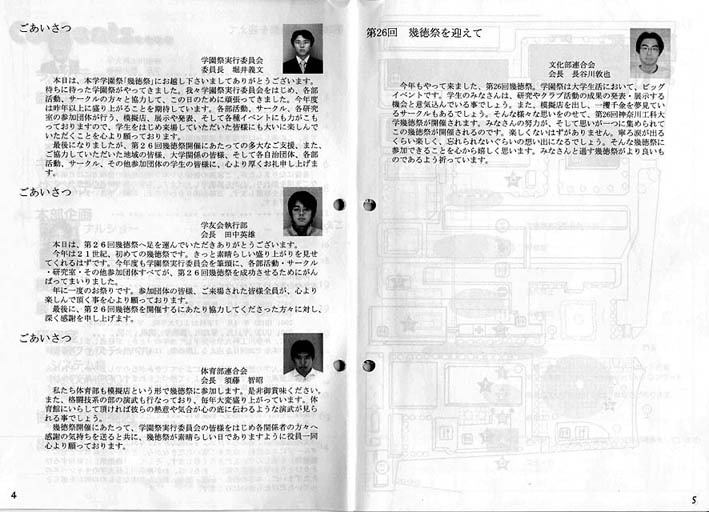 ごあいさつ
学園祭実行委員会
委員長　堀井義文
本日は、本学学園祭「幾徳祭」にお越し下さいましてありがとうございます。
待ちに待った学園祭がやってきました。我々学園祭実行委員会をはじめ、各部
活動、サークルの方々と協力して、この日のために頑張ってきました。今年度
は昨年以上に盛り上がることを期待しています。各部活動、サークル、各研究
室の参加団体が行う、模擬店、展示や発表、そして各種イベントにも力がこも
っておりますので、学生をはじめ来場していただいた皆様にも大いに楽しんで
いただくことを心より願っております。
最後になりましたが、第２６回幾徳祭開催にあたっての多大なご支援、また、
ご協力していただいた地域の皆様、大学関係の皆様、そして各自治団体、各部
活動、サークル、その他参加団体の学生の皆様に、心より厚くお礼申し上げま
す。
ごあいさつ
学友会執行部
会長　田中英雄
本日は、第２６回幾徳祭へ足を運んでいただきありがとうございます。
今年は２１世紀、初めての幾徳祭です。きっと素晴らしい盛り上がりを見せ
てくれるはずです。今年度も学園祭実行委員会を筆頭に、各部活動・サークル
・研究室・その他参加団体すべてが、第２６回幾徳祭を成功させるためにがん
ばってまいりました。
年に一度のお祭りです。参加団体の皆様、ご来場された皆様全員が、心より
楽しんで頂く事を心より願っております。
最後に、第２６回幾徳祭を開催するにあたり協力してくださった方々に対し、
深く感謝を申し上げます。
ごあいさつ
体育部連合会
会長　須藤　智昭
私たち体育部も模擬店という形で幾徳祭に参加します。是非御賞味ください。
また、格闘技系の部の演武も行なっており、毎年大変盛り上がっています。体
育館にいらして頂ければ彼らの熱意や気合が心の底に伝わるような演武が見ら
れる事でしょう。
幾徳祭開催にあたって、学園祭実行委員会の皆様をはじめ各関係者の方々へ
感謝の気持ちを送ると共に、幾徳祭が素晴らしい日でありますように役員一同
心より願っております。
4
第26回　幾徳祭を迎えて
文化部連合会
会長　長谷川敦也
今年もやって来ました、第26回幾徳祭。学園祭は大学生活において、ビッグ
イベントです。学生のみなさんは、研究やクラブ活動の成果の発表・展示する
機会と意気込んでいる事でしょう。また、模擬店を出し、一攫千金を夢見てい
るサークルもあるでしょう。そんな様々な思いをのせて、第26回神奈川工科大
学幾徳祭が開催されます。みなさんの努力が、そして思いが一つに集められて
この幾徳祭が開催されるのです。楽しくないはずがありません。寧ろ涙が出る
くらい楽しく、忘れられないぐらいの思い出になるでしょう。そんな幾徳祭に
参加できることを心から嬉しく思います。みなさんと過す幾徳祭がより良いも
のであるよう祈っています。
5